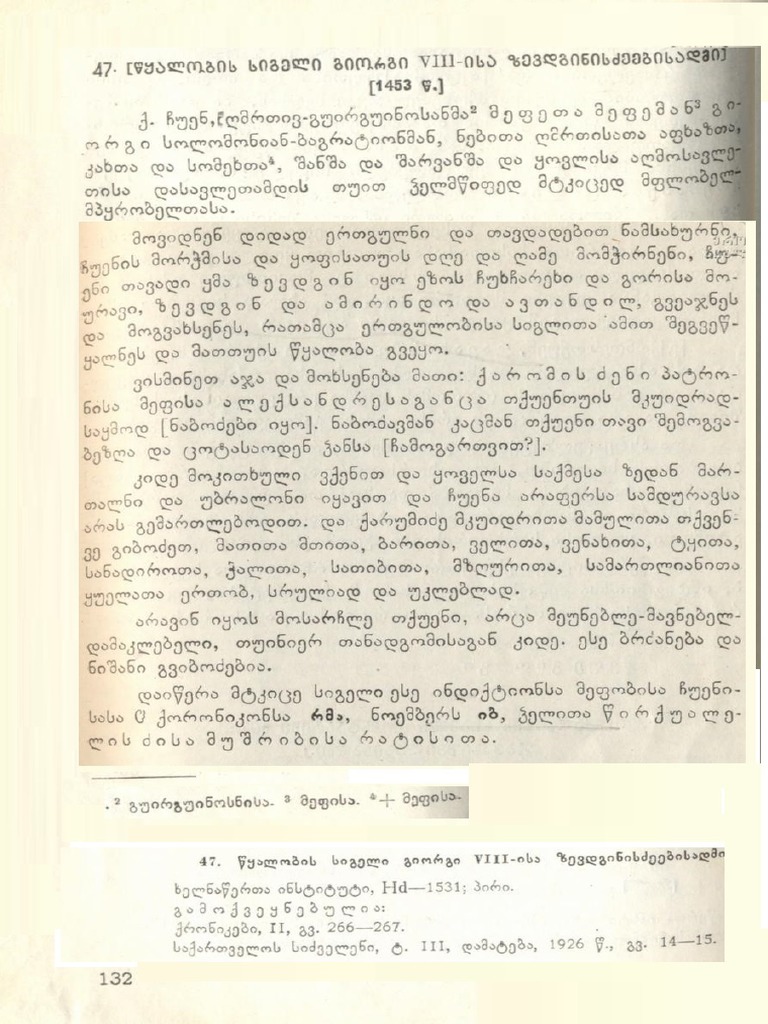 47. [წყალობის სიგელი გიორგი VIII-ისა ზევდგინისძეებისადმი]
[1453 წ.]
ქ. ჩუენ, ღმრთივ-გუირგუინოსანმა² მეფეთა მეფემან³ გი-
ორგი სოლომონიან-ბაგრატიონმან, ნებითა ღმრთისათა აფხაზთა,
კახთა და სომეხთა⁴, შანშა და შარვანშა და ყოვლისა აღმოსავლე-
თისა დასავლეთამდის თუით ჴელმწიფედ მტკიცედ მფლობელ-
მპყრობელთასა.
მოვიდნენ დიდად ერთგულნი და თავდადებით ნამსახურნი,
ჩუენის მორჭმისა და ყოფისათუის დღე და ღამე მომჭირნენი, ჩუ-
ენი თავადი ყმა ზევდგინ იყო ეზოს ჩუხჩარეხი და გორისა მო-
ურავი, ზევდგინ და ამირინდო და ავთანდილ, გვეაჯნეს
და მოგვახსენეს, რათამცა ერთგულობისა სიგლითა ამით შეგვეწ-
ყალნეს და მათთუის წყალობა გვეყო.
ვისმინეთ აჯა და მოხსენება მათი: ქარომის ძენი პატრო-
ნისა მეფისა ალექსანდრესაგანცა თქუენთუის მკუიდრად-
საყმოდ [ნაბოძები იყო]. ნაბოძავმან კაცმან თქუენი თავი შემოგვა-
ბეზღა და ცოტასაოდენ ჴანსა [ჩამოგართვით?].
კიდე მოკითხული ვქენით და ყოველსა საქმესა ზედან მარ-
თალნი და უბრალონი იყავით და ჩუენა არაფერსა სამდურავსა
არას გემართლებოდით. და ქარუმიძე მკუიდრითა მამულითა თქვენ-
ვე გიბოძეთ, მათითა მთითა, ბარითა, ველითა, ვენახითა, ტყითა,
სანადიროთა, ჭალითა, სათიბითა, მზღურითა, სამართლიანითა
ყუელათა ერთობ, სრულიად და უკლებლად.
არავინ იყოს მოსარჩლე თქუენი, არცა მეუნებლე-მავნებელ-
დამაკლებელი, თუინიერ თანადგომისაგან კიდე. ესე ბრძანება და
ნიშანი გვიბოძებია.
დაიწერა მტკიცე სიგელი ესე ინდიქტიონსა მეფობისა ჩუენი-
სასა ჱ ქორონიკონსა რმა, ნოემბერს იბ, ჴელითა წირქუალე-
ლის ძისა მუშრიბისა რატისითა.
² გუირგუინოსნისა. ³ მეფისა. ⁴ + მეფისა.
47. წყალობის სიგელი გიორგი VIII-ისა ზევდგინისძეებისადმი
ხელნაწერთა ინსტიტუტი, Hd—1531; პირი.
გამოქვეყნებულია:
ქრონიკები, II, გვ. 266—267.
საქართველოს სიძველენი, ტ. III, დამატება, 1926 წ., გვ. 14—15.
132